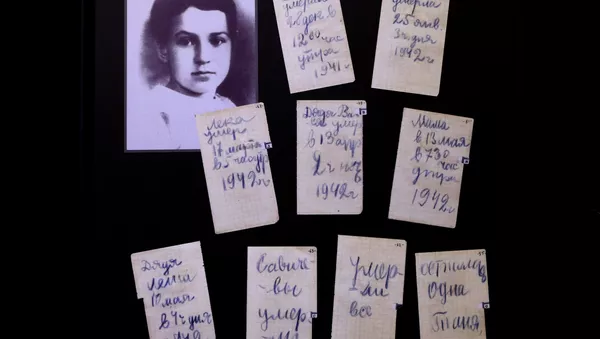 умерла
28 дек. в
12 00 час
утра
1941 г
умерла
25 янв.
3 ч дня
1942 г
Лека
умер
17 марта
в 5 час утр
1942 г
Дядя Ва
ся умер
в 13 апр
2 ч ночь
1942 г
Мама
в 13 мая
в 7 30
час
утра
1942 г
Дядя
Леша
10 мая
в 4 ч дня
Савиче
вы
умер
Умер
ли
все
осталась
одна
Таня